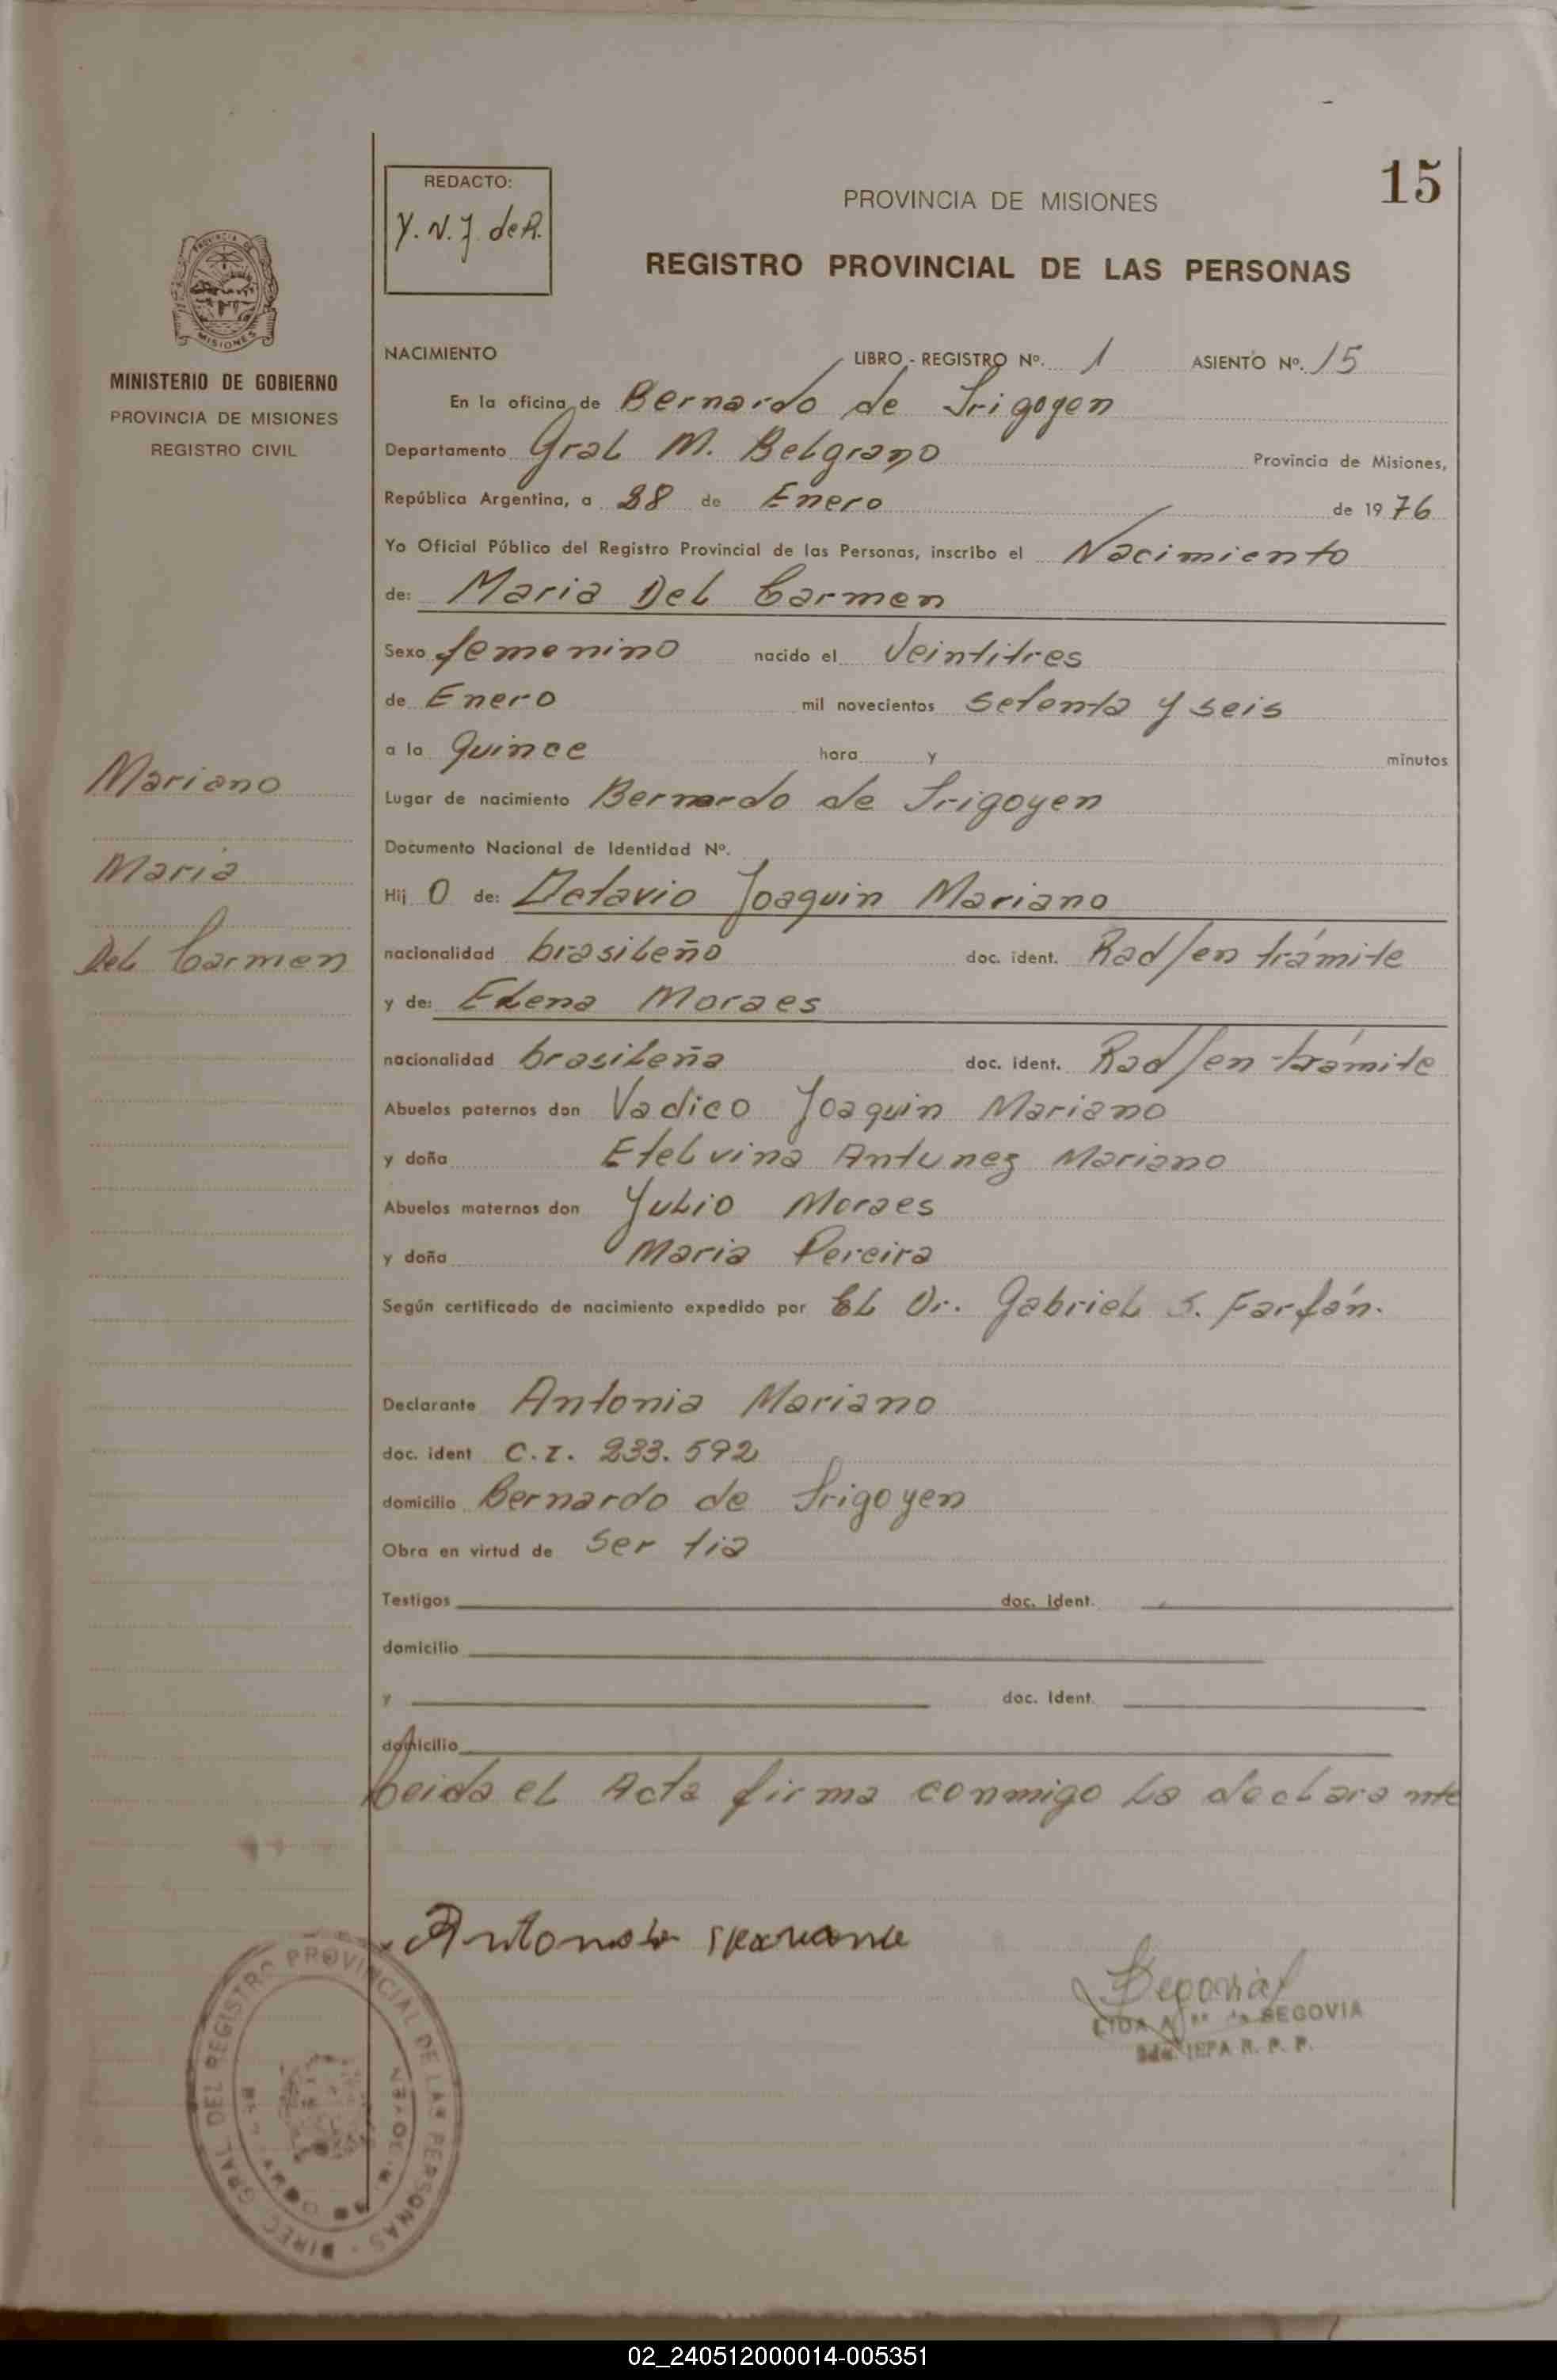 15
REDACTO:
Y. N. J. de R.
PROVINCIA DE MISIONES
REGISTRO PROVINCIAL DE LAS PERSONAS
PROVINCIA DE
MISIONES
MINISTERIO DE GOBIERNO
PROVINCIA DE MISIONES
REGISTRO CIVIL
NACIMIENTO LIBRO - REGISTRO Nº. 1 ASIENTO Nº. 15
En la oficina de Bernardo de Irigoyen
Departamento Gral M. Belgrano Provincia de Misiones,
República Argentina, a 28 de Enero de 1976
Yo Oficial Público del Registro Provincial de las Personas, inscribo el Nacimiento
de: Maria Del Carmen
Sexo femenino nacido el Veintitres
de Enero mil novecientos setenta y seis
a la Quince hora y minutos
Lugar de nacimiento Bernardo de Irigoyen
Documento Nacional de Identidad Nº.
Hij O de: Octavio Joaquin Mariano
nacionalidad brasileño doc. ident. Rad/en trámite
y de: Elena Moraes
nacionalidad brasileña doc. ident. Rad/en trámite
Abuelos paternos don Vadico Joaquin Mariano
y doña Etelvina Antunez Mariano
Abuelos maternos don Julio Moraes
y doña Maria Pereira
Según certificado de nacimiento expedido por El Dr. Gabriel S. Farfán.
Declarante Antonia Mariano
doc. ident C.I. 233.592
domicilio Bernardo de Irigoyen
Obra en virtud de ser tia
Testigos doc. ident.
domicilio
y doc. ident.
domicilio
Leida el Acta firma conmigo la declarante
Mariano
Maria
Del Carmen
Segovia
SEGOVIA
R. P. P.
DIREC. GRAL. DEL REGISTRO PROVINCIAL DE LAS PERSONAS
02_240512000014-005351